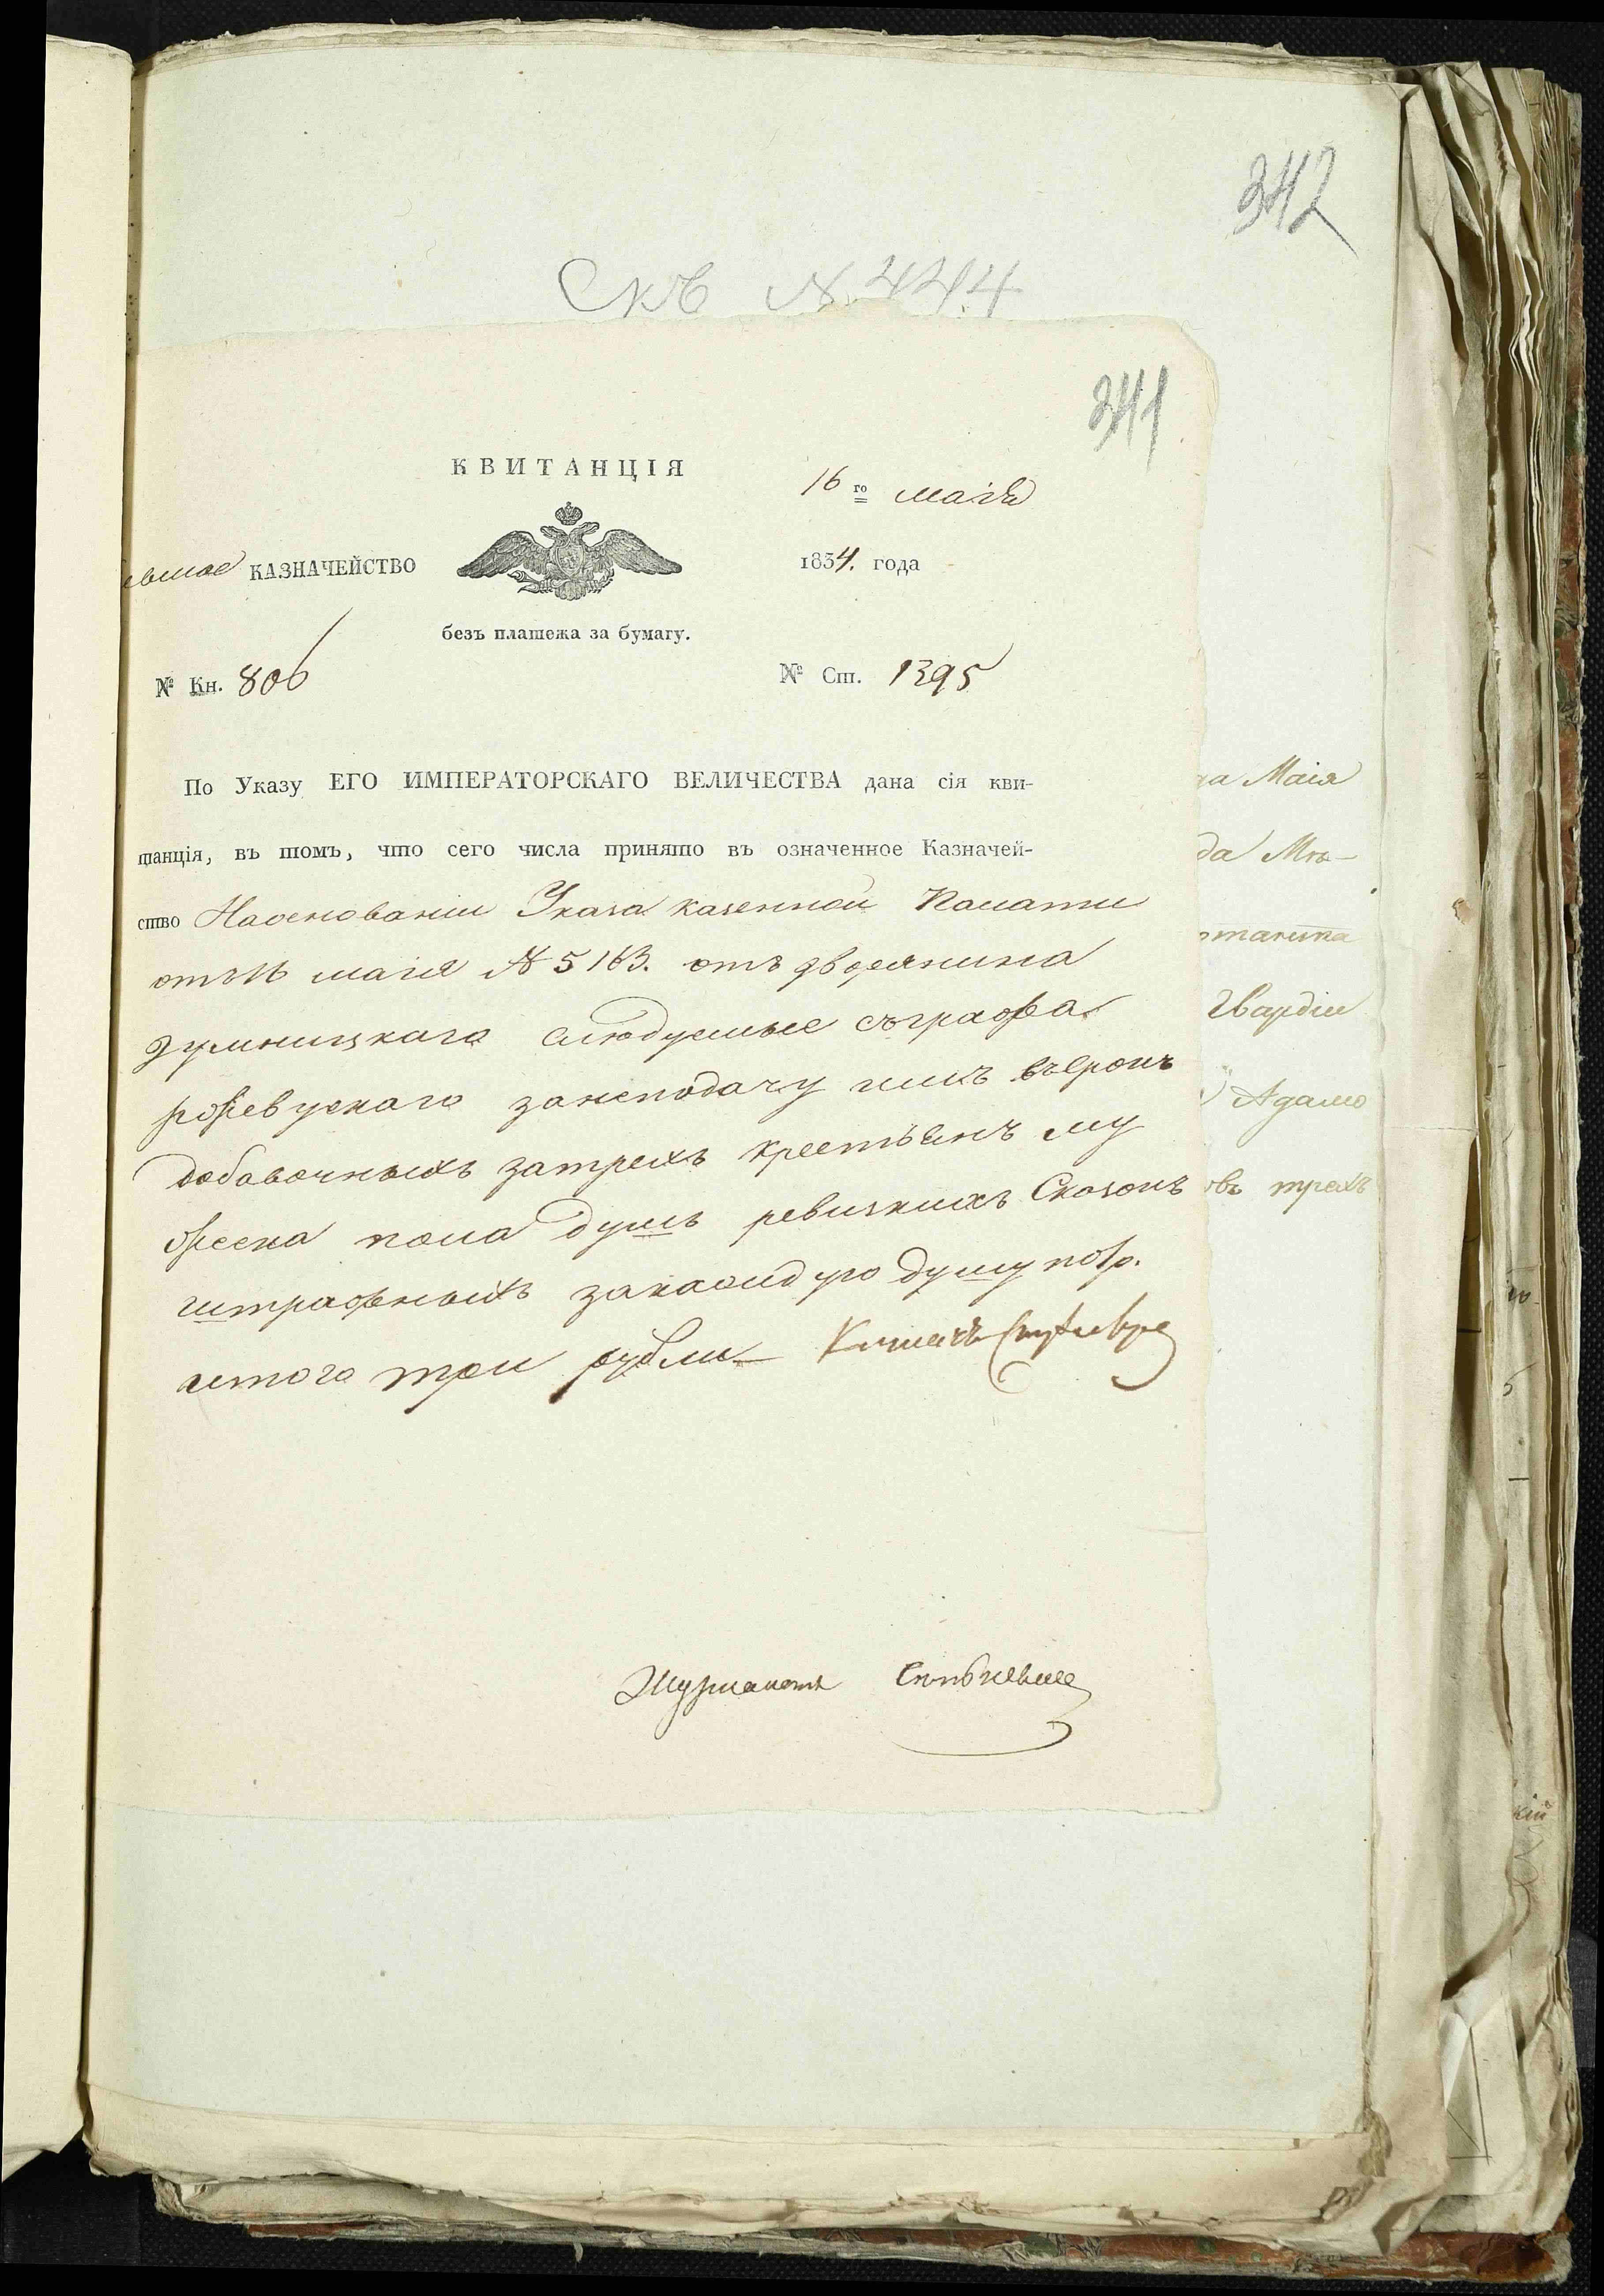 342
Скъ № 444
341
КВИТАНЦІЯ
16 го маія
КАЗНАЧЕЙСТВО
1834. года
безъ платежа за бумагу.
№ Кн. 806
№ Ст. 1395
По Указу ЕГО ИМПЕРАТОРСКАГО ВЕЛИЧЕСТВА дана сія кви-
танція, въ томъ, что сего числа принято въ означенное Казначей-
ство Наоснованіи Указа казенной Палаты
отъ 16 маія № 5163. отъ дворянина
следуемые съграфа
занеподачу имъ въсрокъ
добавочныхъ затрехъ крестьянъ му
жеска пола душъ ревизкихъ Сказокъ
штрафныхъ закаждую душу по 1 р.
итого три рубли
да Маія
да Мѣ-
Гвардіи
Адамо
овъ трехъ
кій